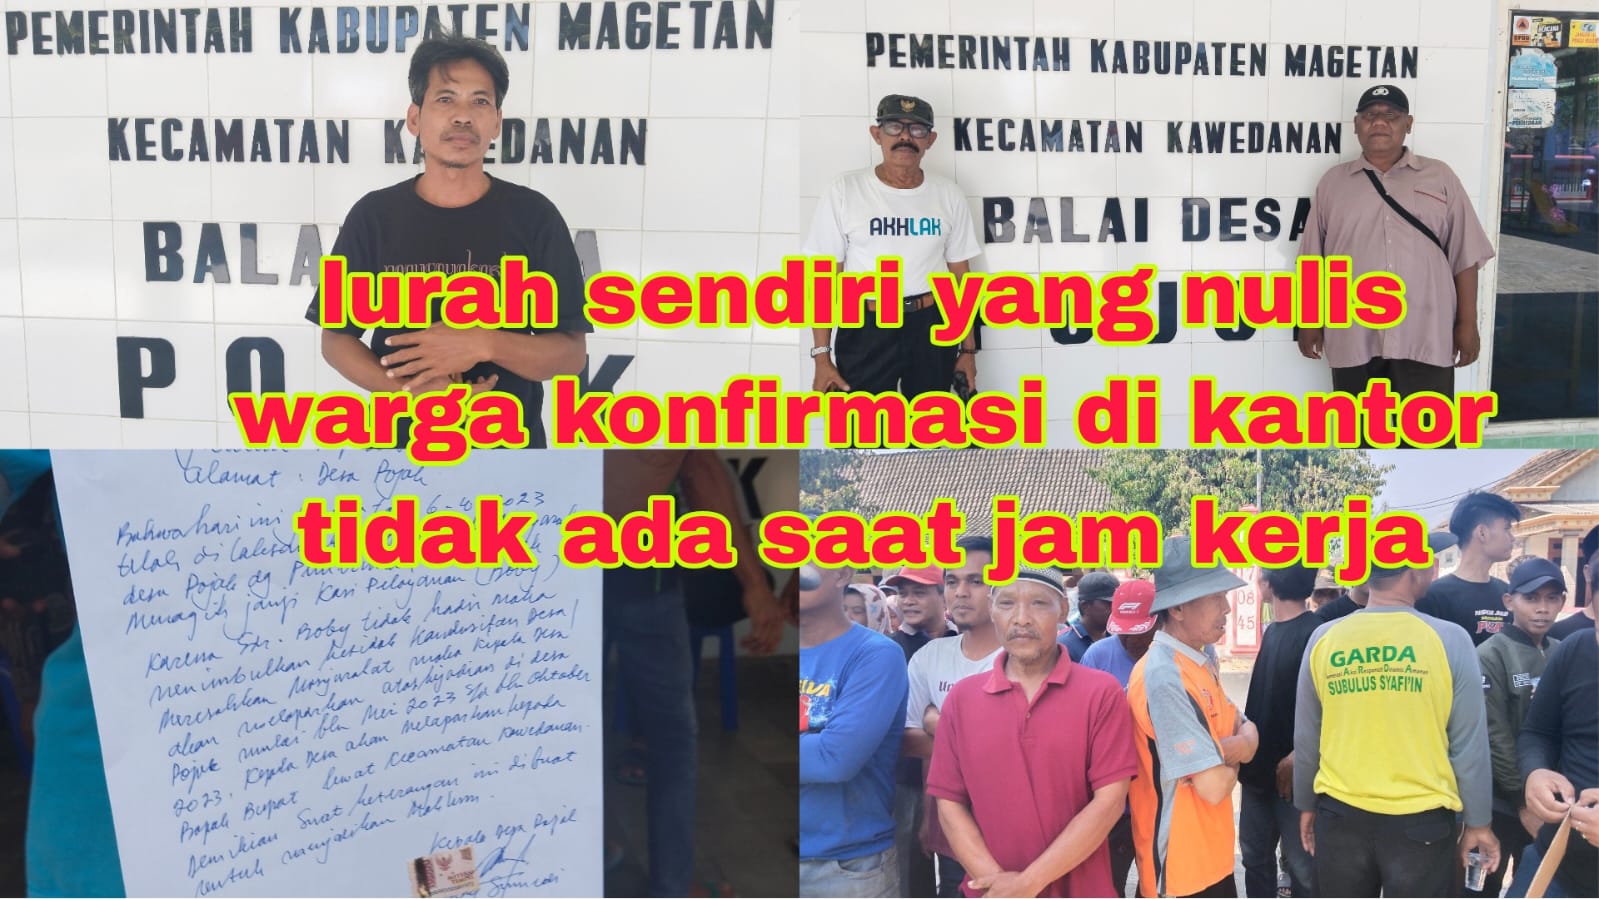 PEMERINTAH KABUPATEN MAGETAN
KECAMATAN KAWEDANAN
BALAI DESA
PEMERINTAH KABUPATEN MAGETAN
KECAMATAN KAWEDANAN
BALAI DESA
AKHLAK
lurah sendiri yang nulis
warga konfirmasi di kantor
tidak ada saat jam kerja
alamat : Desa Pojok
Bahwa hari ini 2023
telah di
desa Pojok dg
menagih janji Kasi Pelayanan (Boby)
Karena Sdr. Boby tidak hadir maka
menimbulkan ketidak kondusifan Desa/
meresahkan masyarakat maka Kepala Desa
akan melaporkan atas kejadian di desa
Pojok mulai bln Mei 2023 s/d bln Oktober
2023. Kepala Desa akan melaporkan kepada
Bapak Bupati lewat Kecamatan Kawedanan.
Demikian Surat keterangan ini dibuat
untuk menjadikan maklum.
Kepala Desa Pojok
08
45
GARDA
SUBULUS SYAFI'IN